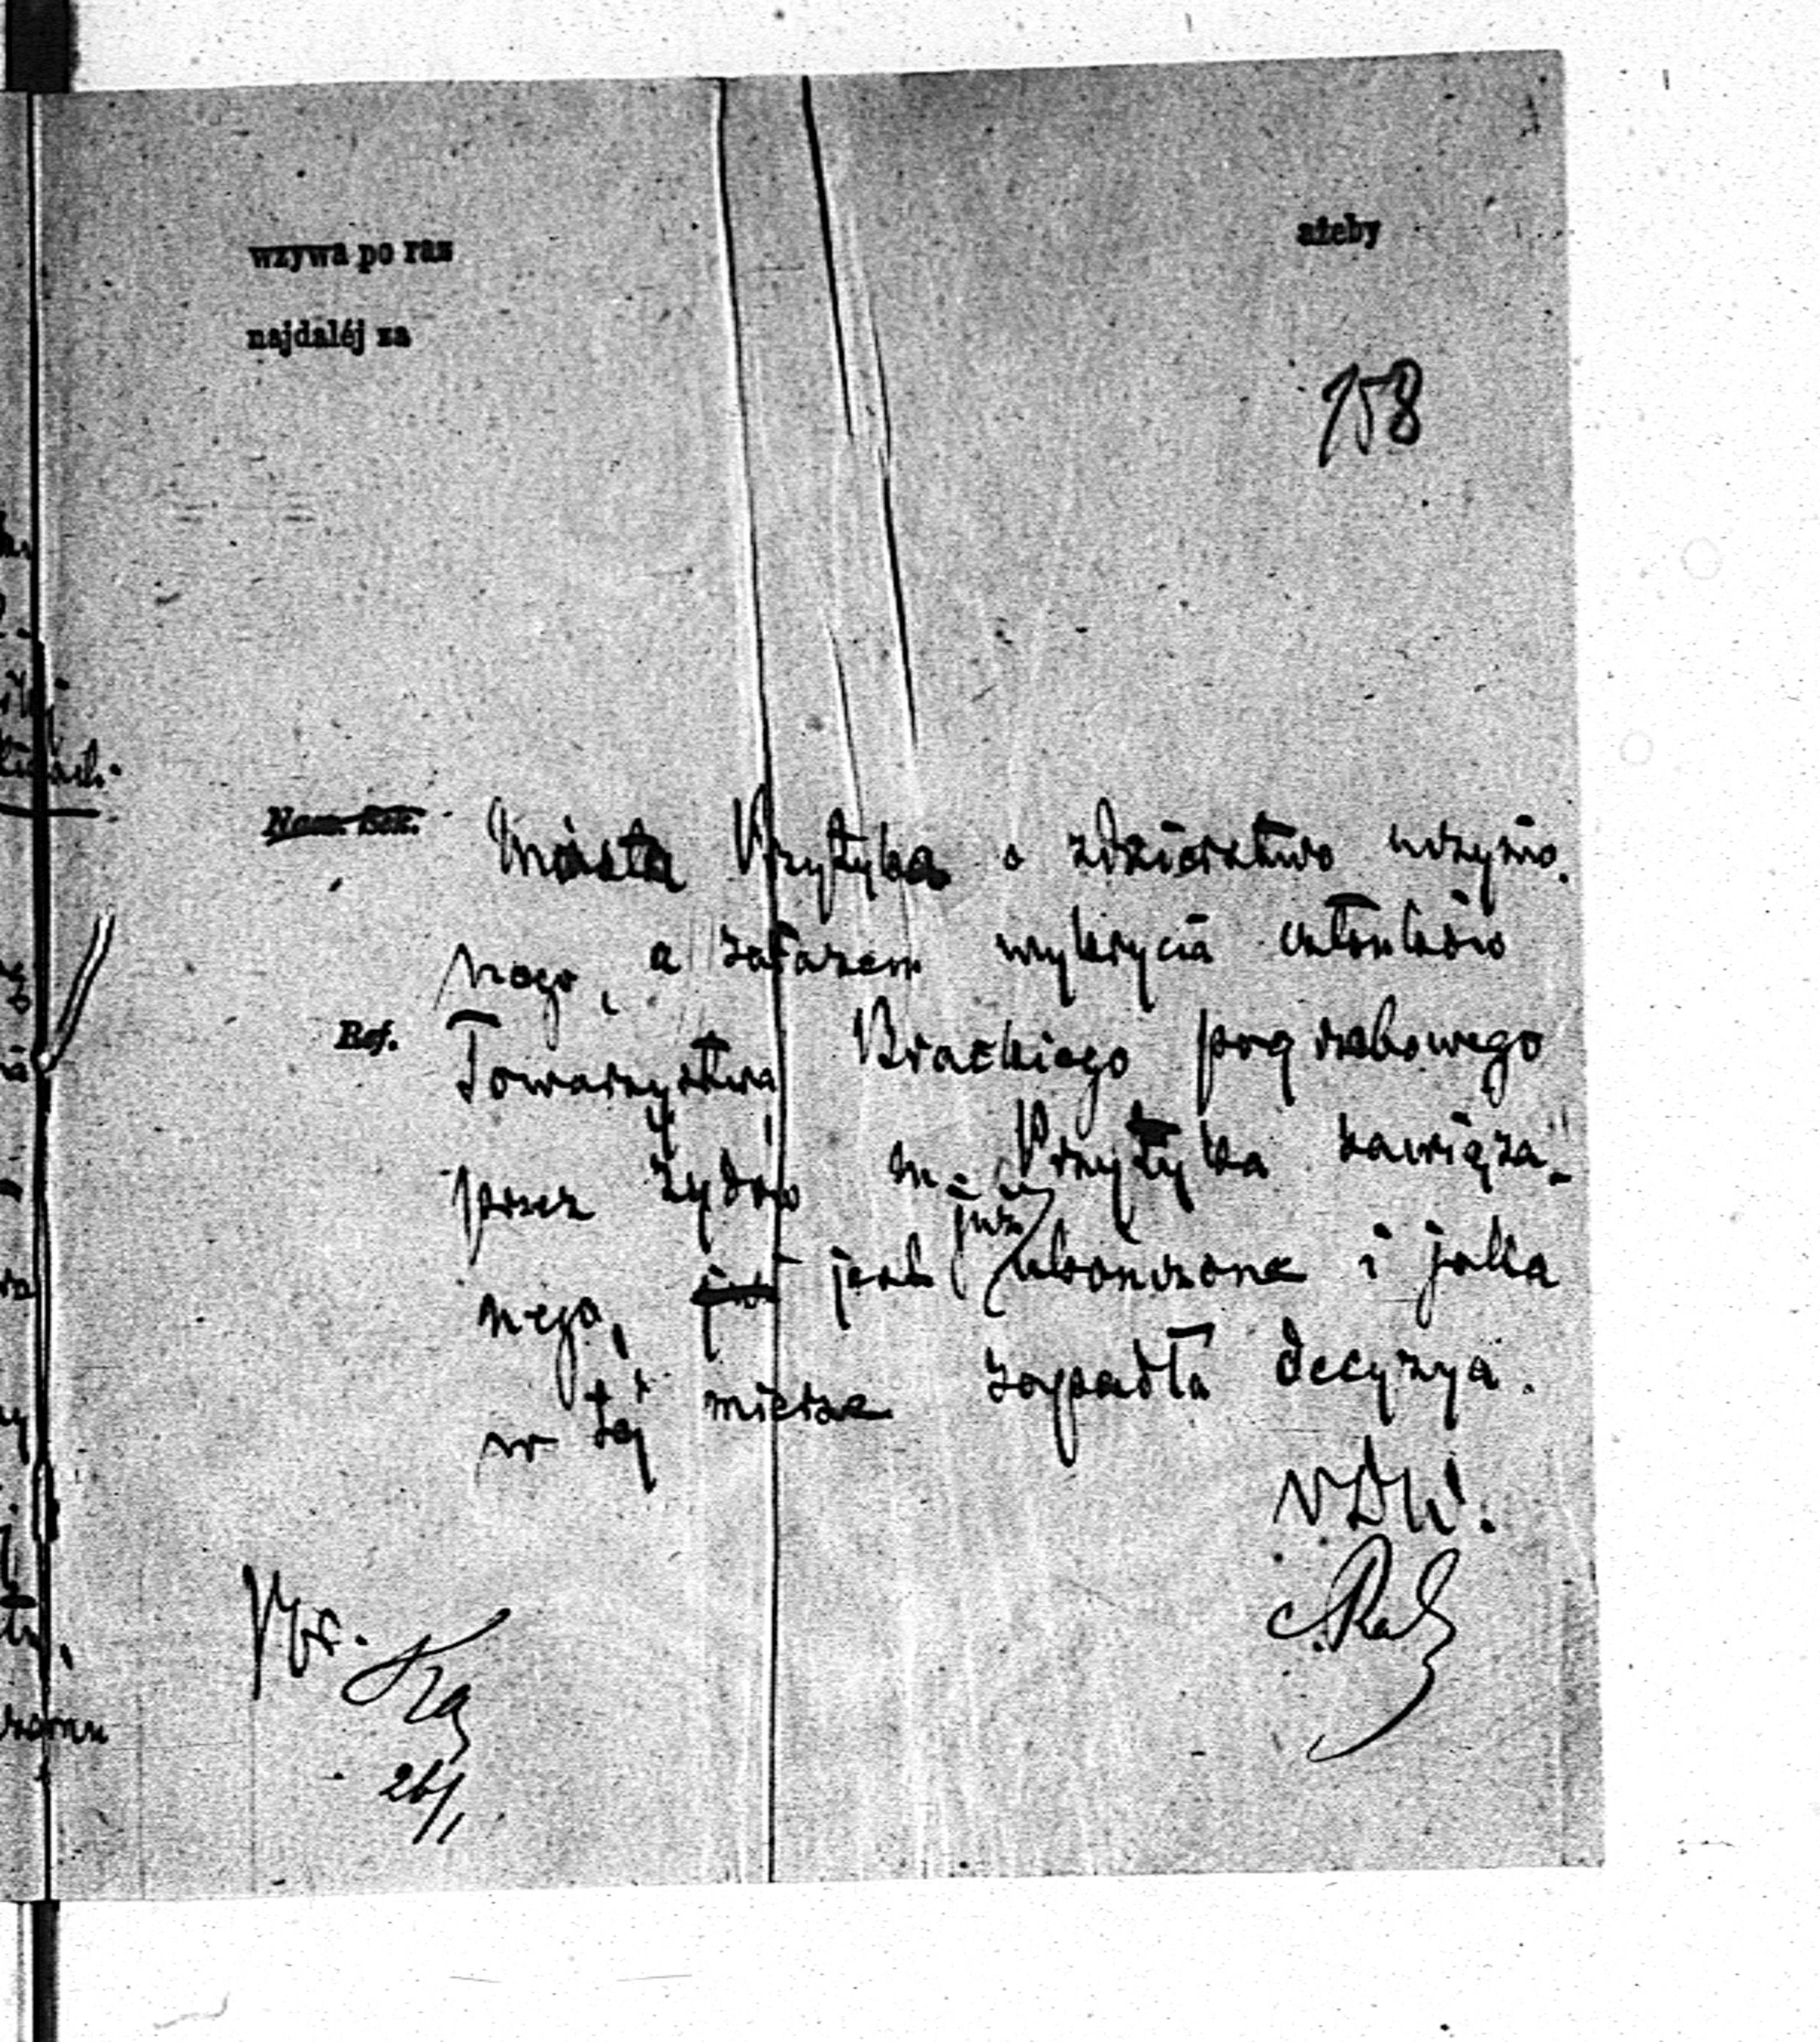 wzywa po raz
ażeby
najdaléj za
158
Nacz. Sek.
Miasta Przytyka o zdzierstwo uczynio
nego, a zarazem wykrycia członków
Ref.
Towarzystwa Brackiego pogrzebowego
przez żydów m. Przytyka zawiąza-
nego, jest już ukończone i jaka
w tej mierze zapadła decyzya.
26/1